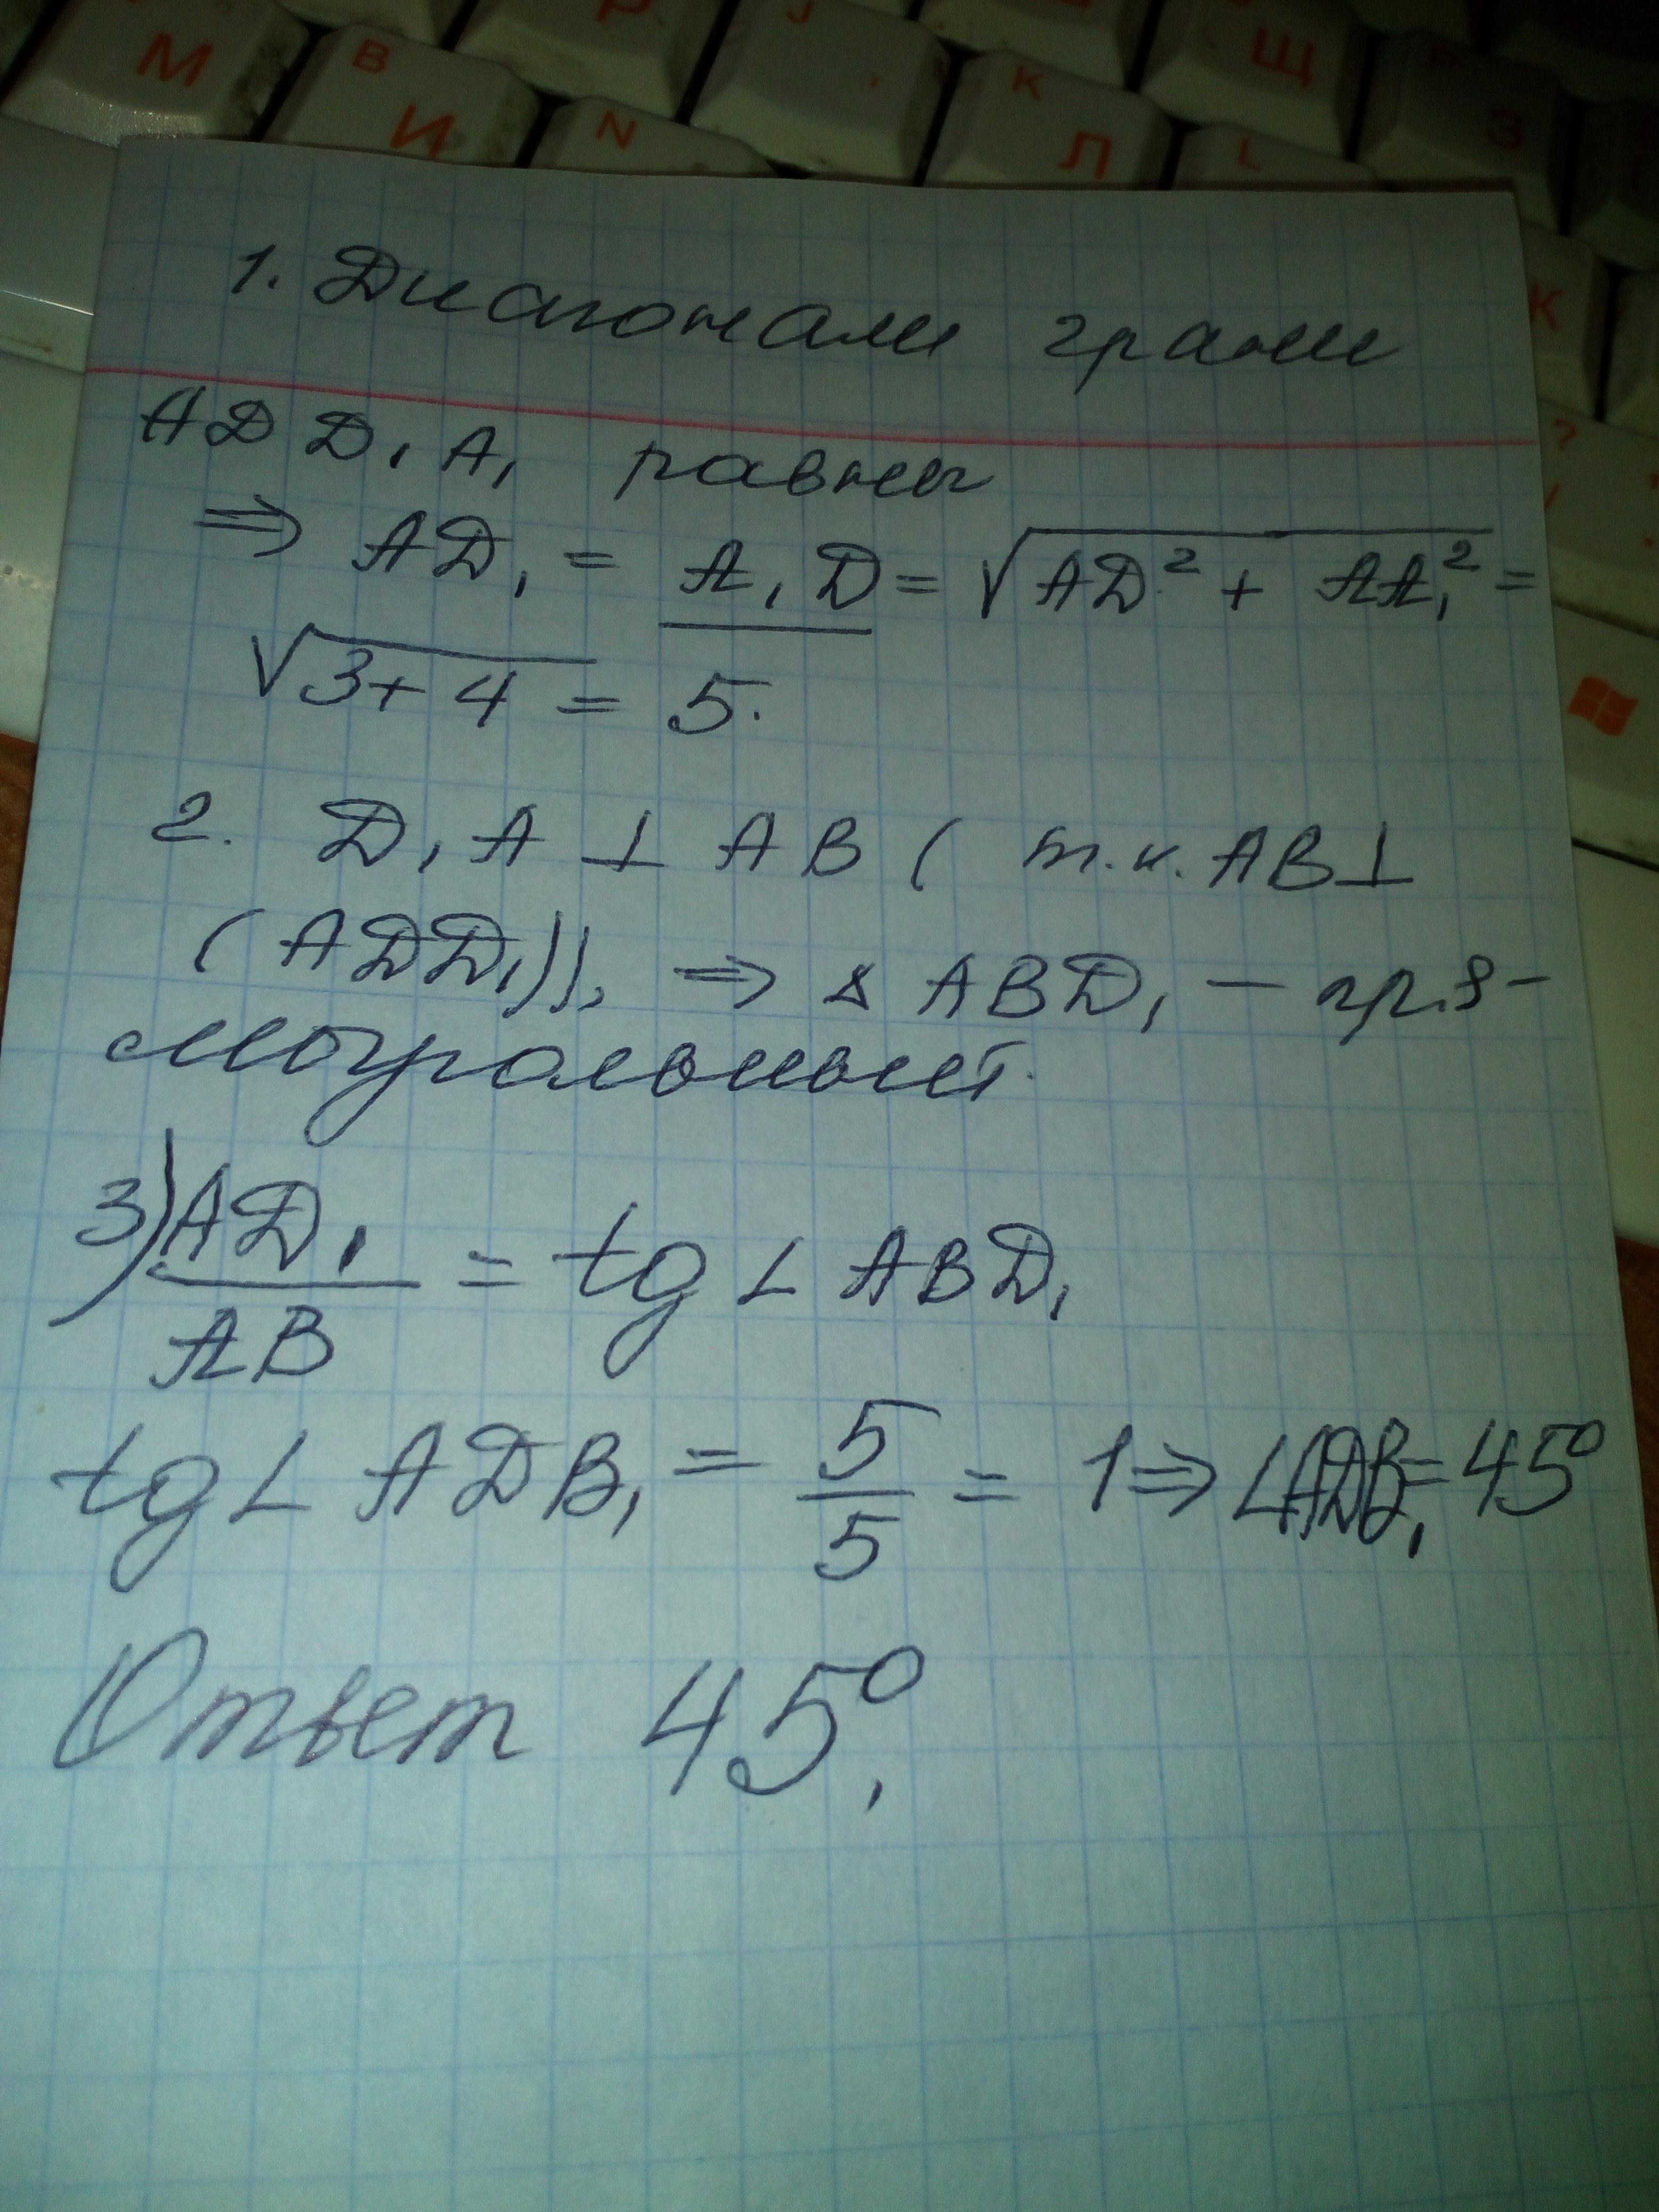 М
В
И
N
Р
J
,
К
Л
Щ
L
З
К
?
1. Диагонали грани
ADD₁A₁ равны
⇒ AD₁ = A₁D = √AD² + AA₁² =
√3+4 = 5.
2. D₁A ⊥ AB ( т.к. AB⊥
(ADD₁)), ⇒ ∆ ABD₁ — пря-
моугольный.
3) AD₁/AB = tg ∠ ABD₁
tg ∠ ADB₁ = 5/5 = 1 ⇒ ∠ADB₁ = 45°
Ответ 45°.